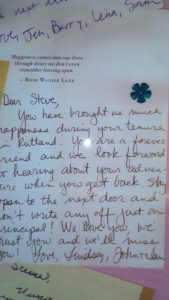 next
Jen, Barry, Lena, Sam
Happiness comes into our lives
through doors we don't even
remember leaving open.
- ROSE WILDER LANE
Dear Steve,
You have brought us much
happiness during your tenure
in Rutland. You are a forever
friend and we look forward
to hearing about your adven-
ture when you get back. Stay
open to the next door and
don't write any off just on
principal! We love you, we
trust you and we'll miss
you! Love, Lindsay, John